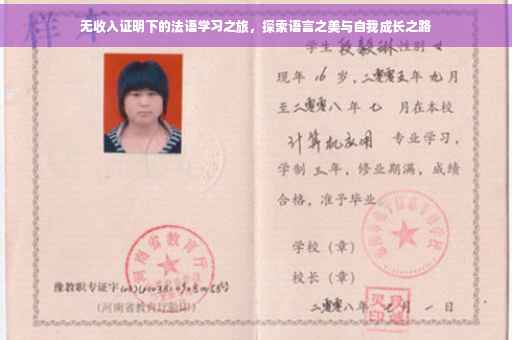 无收入证明下的法语学习之旅，探索语言之美与自我成长之路
样本
学生段毅琳性别女
现年16岁，二零零五年九月
至二零零八年七月在本校
计算机应用 专业学习，
学制三年，修业期满，成绩
合格，准予毕业。
学校（章）
校长（章）
二零零八年七月一日
河南省教育厅
豫教职专证字
（河南省教育厅验印）